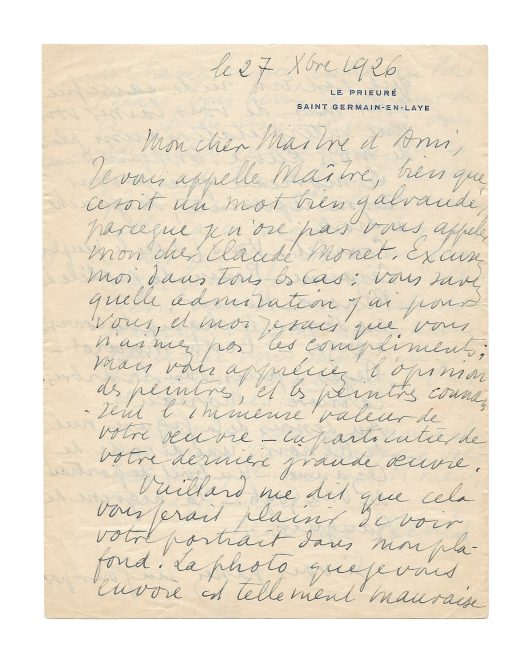 le 27 Xbre 1926
LE PRIEURÉ
SAINT GERMAIN-EN-LAYE
Mon cher Maître et Ami,
Je vous appelle Maître, bien que
ce soit un mot bien galvaudé,
parceque je n'ose pas vous appeler
mon cher Claude Monet. Excusez
moi dans tous les cas: vous savez
quelle admiration j'ai pour
vous, et moi je sais que vous
n'aimez pas les compliments;
mais vous appréciez l'opinion
des peintres, et les peintres connais-
sent l'immense valeur de
votre œuvre – en particulier de
votre dernière grande œuvre.
Vuillard me dit que cela
vous ferait plaisir de voir
votre portrait dans mon pla-
fond. La photo que je vous
envoie est tellement mauvaise